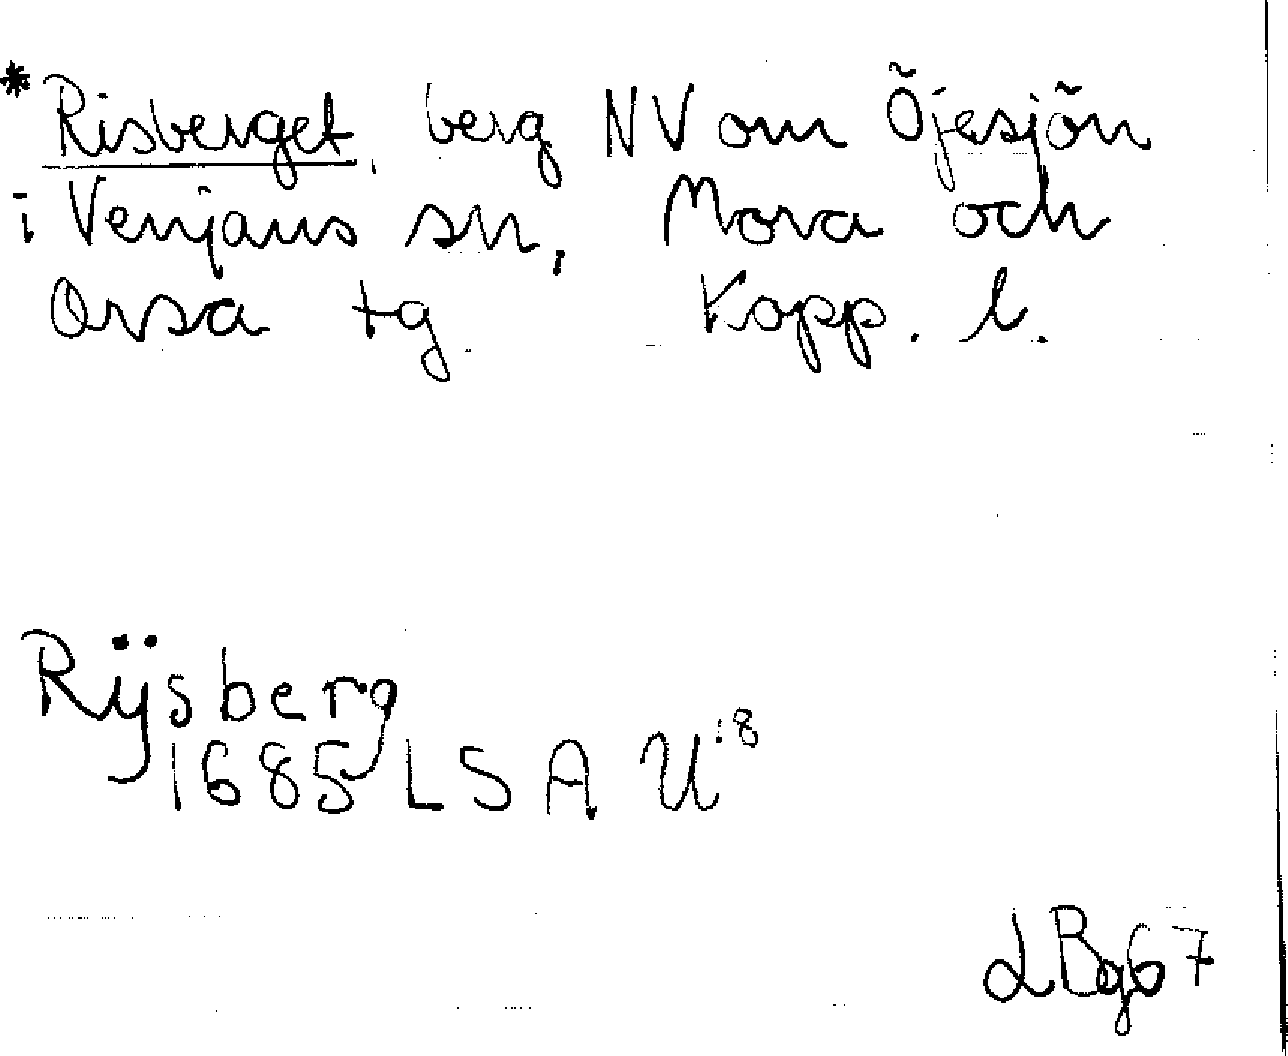 * Risberget, berg NV om Öjesjön
i Venjans sn, Mora och
Orsa tg. Kopp. l.
Rÿsberg
1685 LSA U 18
LBg 67